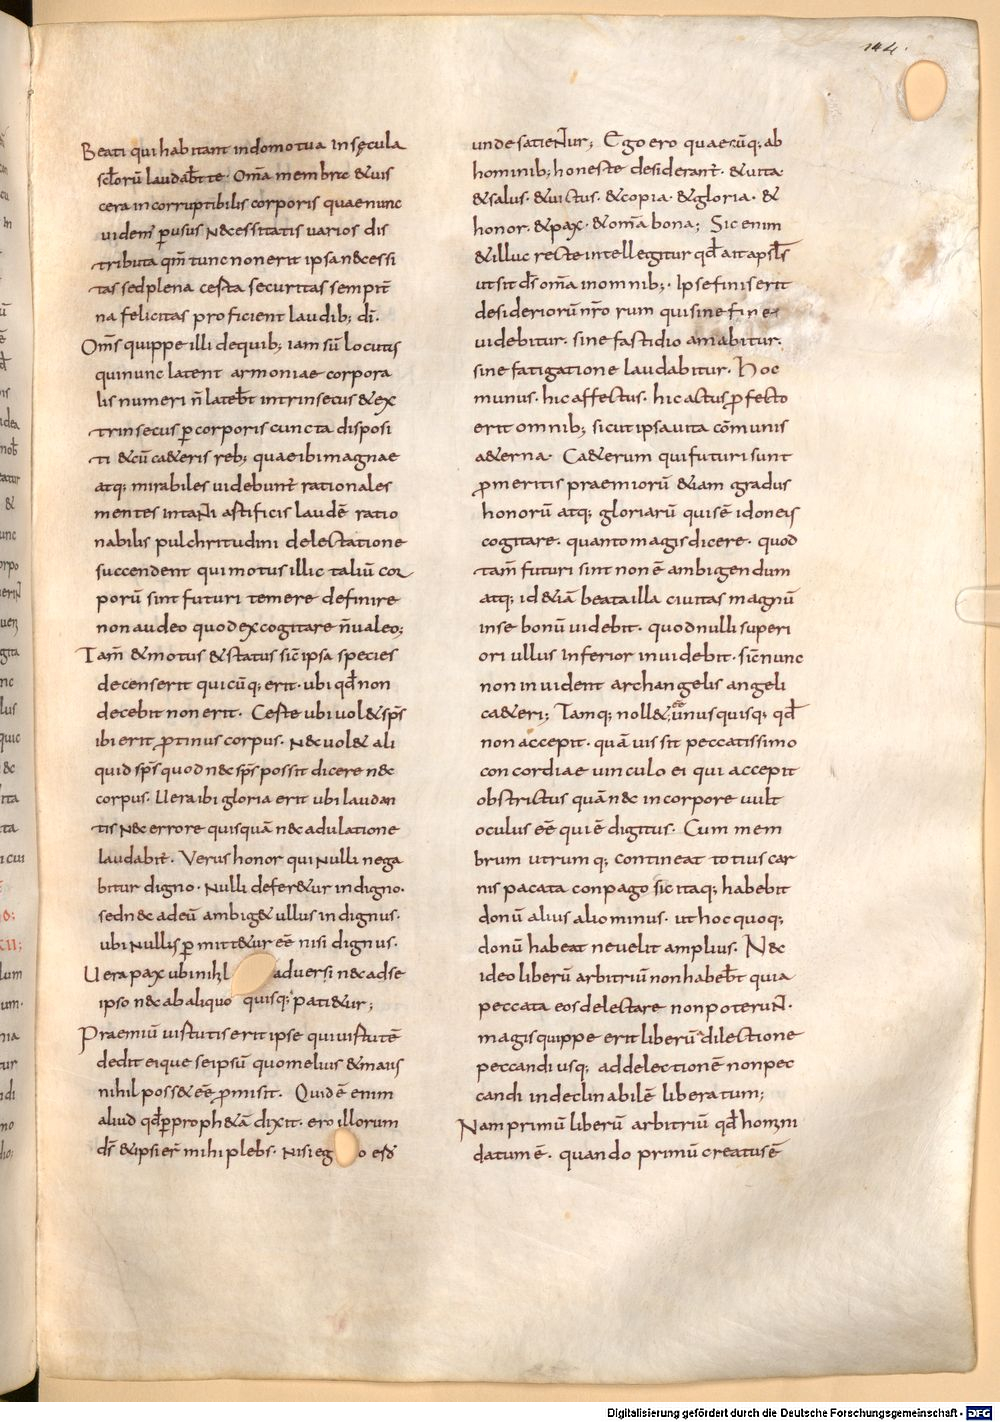 144.
Beati qui habitant in domo tua In sęcula
sclorũ laudab̄t te. Om̄a membra &uis
cera incorruptibilis corporis quae nunc
uidem̄ p̱ usus N&cessitatis uarios dis
tributa qm̄ tunc non erit ipsa n&cessi
tas sed plena certa securitas sempit̄
na felicitas proficient laudib; dī.
Om̄s quippe illi de quib; iam sũ locutis
qui nunc latent armoniae corpora
lis numeri ñ lateb̄t intrinsecus &ex
trinsecus p̱ corporis cuncta disposi
ti &cũ ca&eris reb; quae ibi magnae
atq; mirabiles uidebunt̄ rationales
mentes in taNti artificis laudẽ ratio
nabilis pulchritudini delectatione
succendent qui motus illic taliũ cor
porũ sint futuri temere definire
non audeo quod excogitare ñ ualeo;
Tam̄ &motus &status sic̄ ipsa species
decens erit quicũq; erit. ubi qd̄ non
decebit non erit. Certe ubi uol& sp̄s
ibi erit ꝓtinus corpus. N&c uol& ali
quid sp̄s quod n&c sp̄s possit dicere n&c
corpus. Uera ibi gloria erit ubi laudan
tis N&c errore quisquã n&c adulatione
laudabit̄. Verus honor qui Nulli nega
bitur digno. Nulli defer&ur indigno.
sed n&c ad eũ ambig& ullus indignus.
ubi Nullis p̱mitt&ur eẽ nisi dignus.
Uera pax ubi nihil aduersi n&c a dse
ipso n&c ab aliquo quisq; pati&ur;
Praemiũ uirtutis erit ipse qui uirtutẽ
dedit eique se ipsũ quo melius &maius
nihil poss& eẽ ꝓmisit. Quid ẽ enim
aliud qd̄ p̱ proph&ã dixit. ero illorum
ds̄ &ipsi er̄ mihi plebs. Nisi ego es̄s
unde satieNtur; Ego ero quaecũq; ab
hominib; honeste desiderant̄. &uita.
&salus. &uictus. &copia. &gloria. &
honor. &pax. &om̄a bona; Sic enim
&illuc recte intellegitur qd̄ ait apsl̄s
ut sit ds̄ om̄a in omnib;. Ipse finis erit
desideriorũ nr̄orum qui sine fine
uidebitur. sine fastidio amabitur.
sine fatigatione laudabitur. Hoc
munus. hic affectus. hic actus ꝓfecto
erit omnib; sicut ipsa uita cõmunis
a&erna. Ca&erum qui futuri sunt
ꝓ meritis praemiorũ &iam gradus
honorũ atq; gloriarũ quis ẽ idoneis
cogitare. quanto magis dicere. quod
tam̄ futuri sint non ẽ ambigendum
atq; id &iã beata illa ciuitas magnũ
in se bonũ uidebit. quod nulli superi
ori ullus Inferior inuidebit. sic̄ nunc
non inuident archangelis angeli
ca&eri; Tamq; noll& eẽ unusquisq; qd̄
non accepit. quãuis sit peccatissimo
concordiae uinculo ei qui accepit
obstrictus quã n&c in corpore uult
oculus eẽ qui ẽ digitus. Cum mem
brum utrumq; contineat totius car
nis pacata conpago sic itaq; habebit
donũ alius alio minus. ut hoc quoq;
donũ habeat ne uelit amplius. N&c
ideo liberũ arbitriũ non habeb̄t quia
peccata eos delectare non poteruNt.
magis quippe erit liberũ a dilectione
peccandi usq; ad delectionẽ non pec
candi indeclinabilẽ liberatum;
Nam primũ liberũ arbitriũ qd̄ homini
datum ẽ. quando primũ creatus ẽ
Digitalisierung gefördert durch die Deutsche Forschungsgemeinschaft - DFG